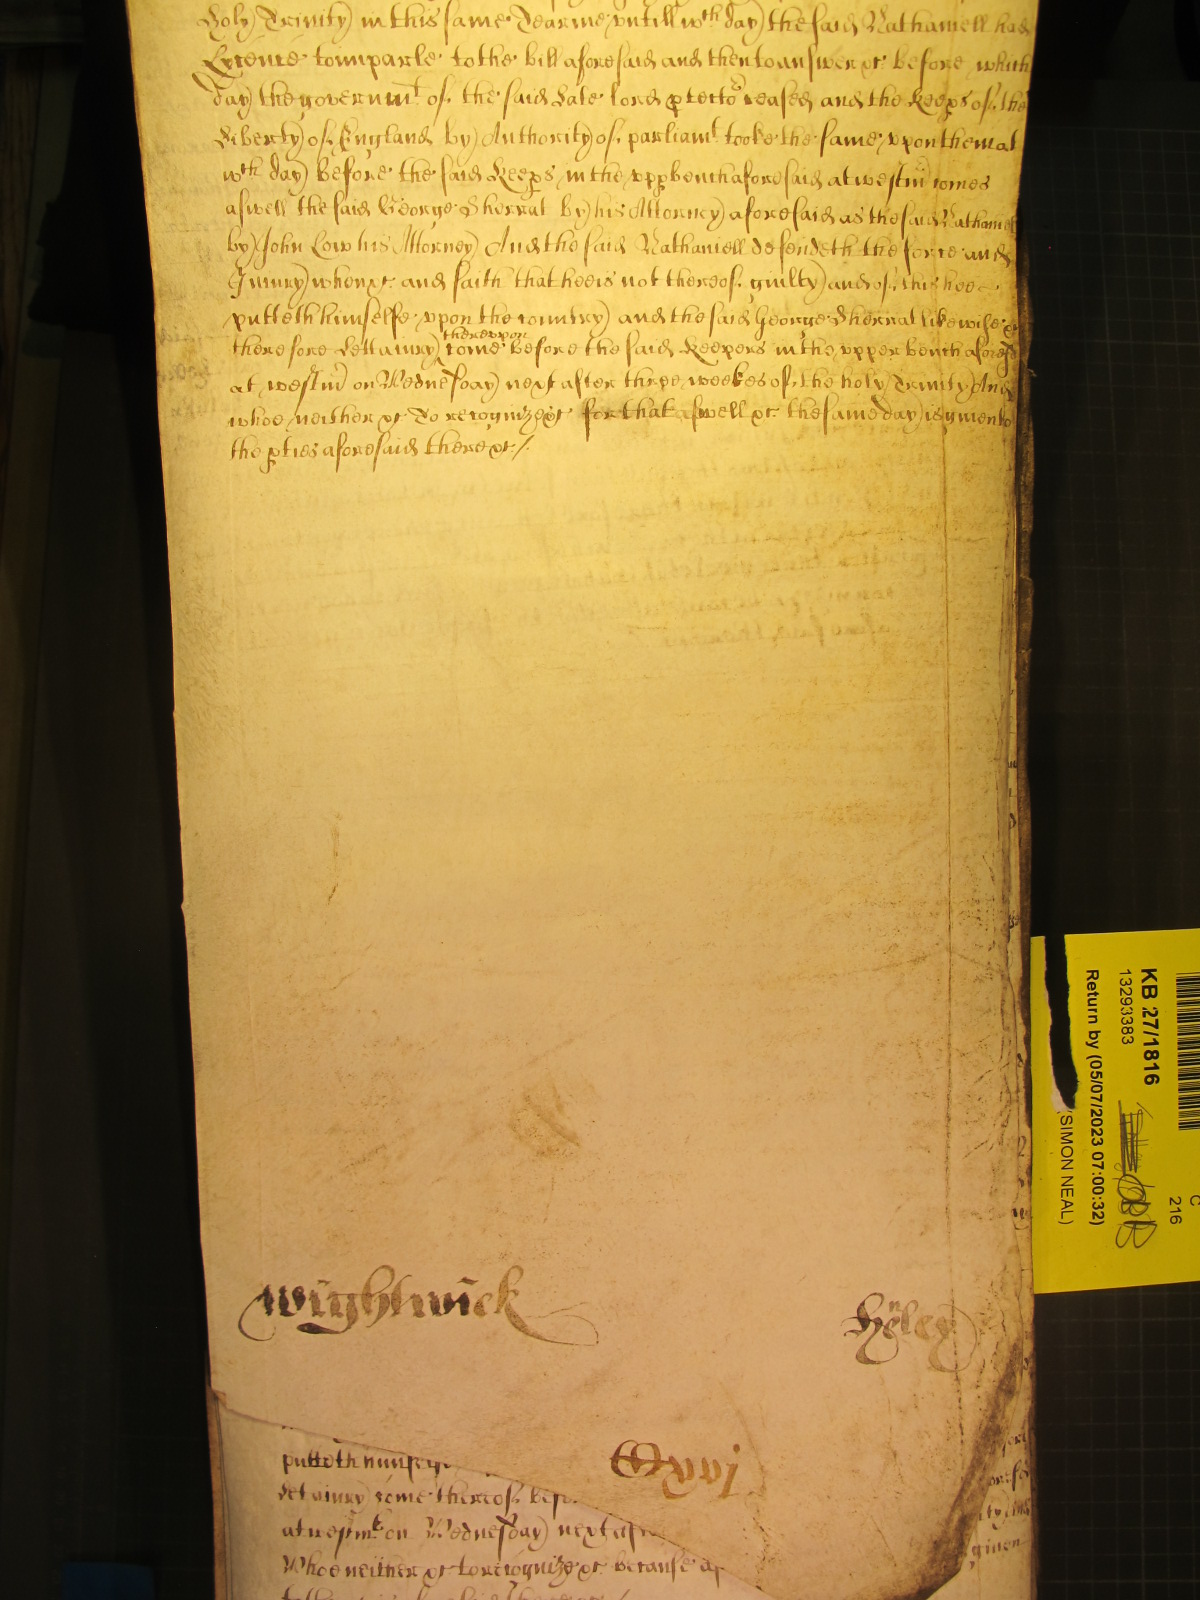 Holy Trinity in this same Tearme untill wch day the said Nathaniell had
Licence to imparle to the bill aforesaid and then to answer &c before which
day the governmt of the said late lord protector ceased and the Keeps of the
Liberty of England by Authority of parliamt tooke the same upon them at
wch day before the said Keeps in the uppr bench aforesaid at westm comes
aswell the said George Sherrat by his Attorney aforesaid as the said Nathaniel
by John Low his Attorney And the said Nathaniell defendeth the force and
Iniury when &c and saith that hee is not thereof guilty and of this hee
putteth himselfe upon the country and the said George Sherrat likewise &c
therefore Lett a iury thereupon come before the said Keepers in the upper bench aforesd
at westm on Wednesday next after three weekes of the holy Trinity And
whoe neither &c to recognize &c for that aswell &c the same day is given to
the pties aforesaid there &c /.
Wightwick
Hyley
putteth himselfe
let a iury come thereof before
at westmr on Wednesday next after
Whoe neither &c to recognize &c because as
given
KB 27/1816
13293383
Return by (05/07/2023 07:00:32)
(SIMON NEAL)
C
216